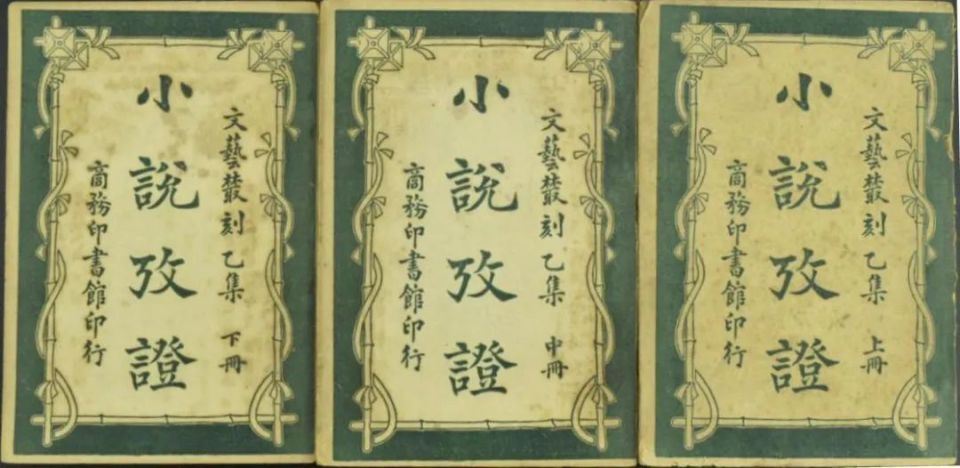 文藝叢刻乙集 上冊
小說攷證
商務印書館印行
文藝叢刻乙集 中冊
小說攷證
商務印書館印行
文藝叢刻乙集 下冊
小說攷證
商務印書館印行